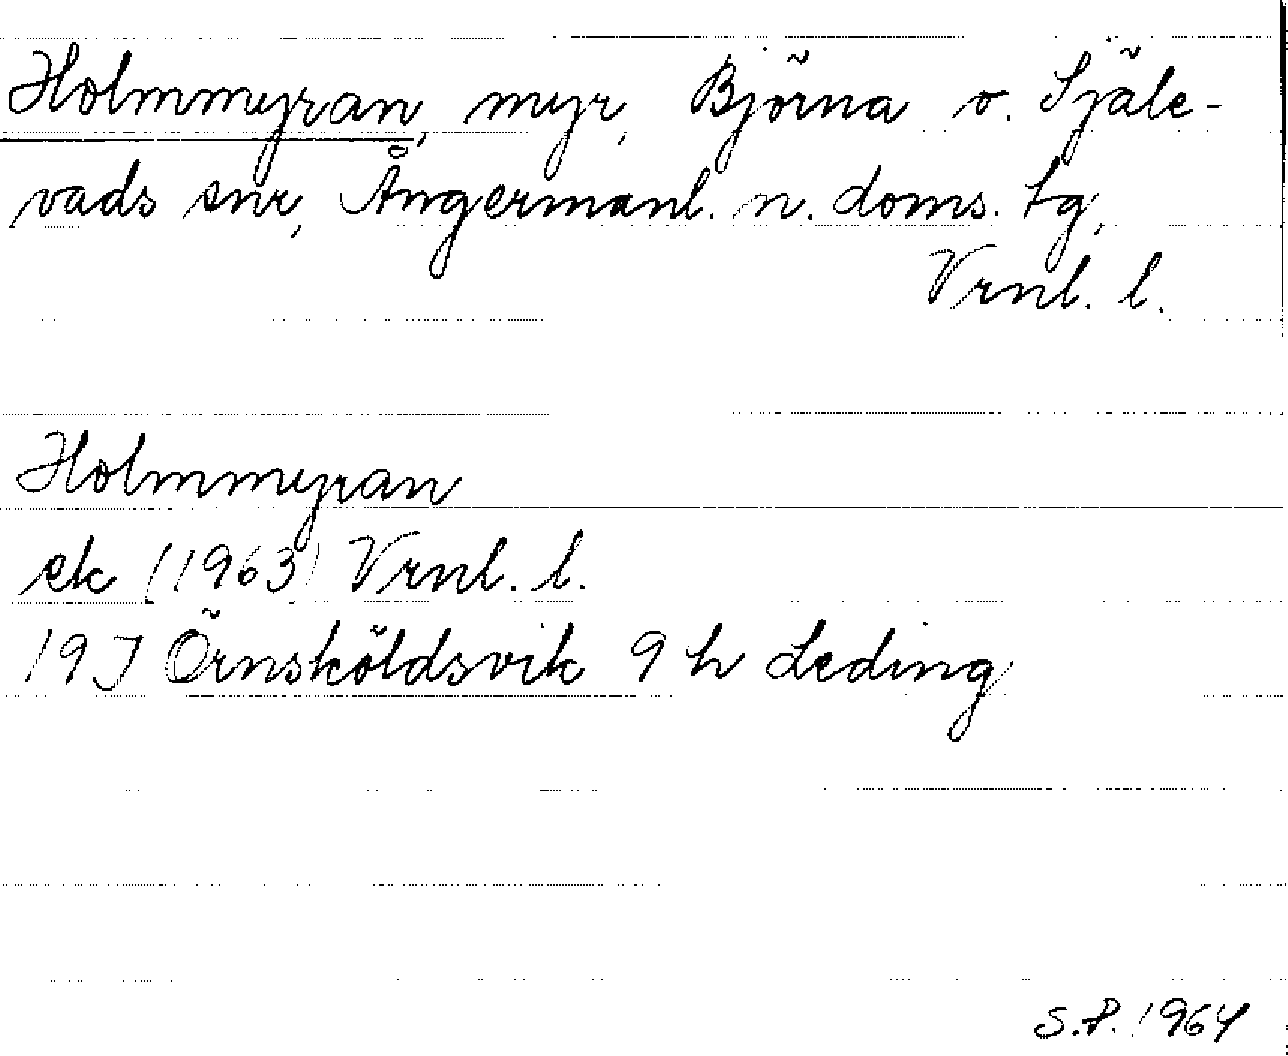 Holmmyran, myr, Björna o. Själe-
vads snr, Ångermanl. n. doms. tg,
Vrnl. l.
Holmmyran
ek (1963) Vrnl. l.
19J Örnsköldsvik 9 h Leding
S.P. 1964